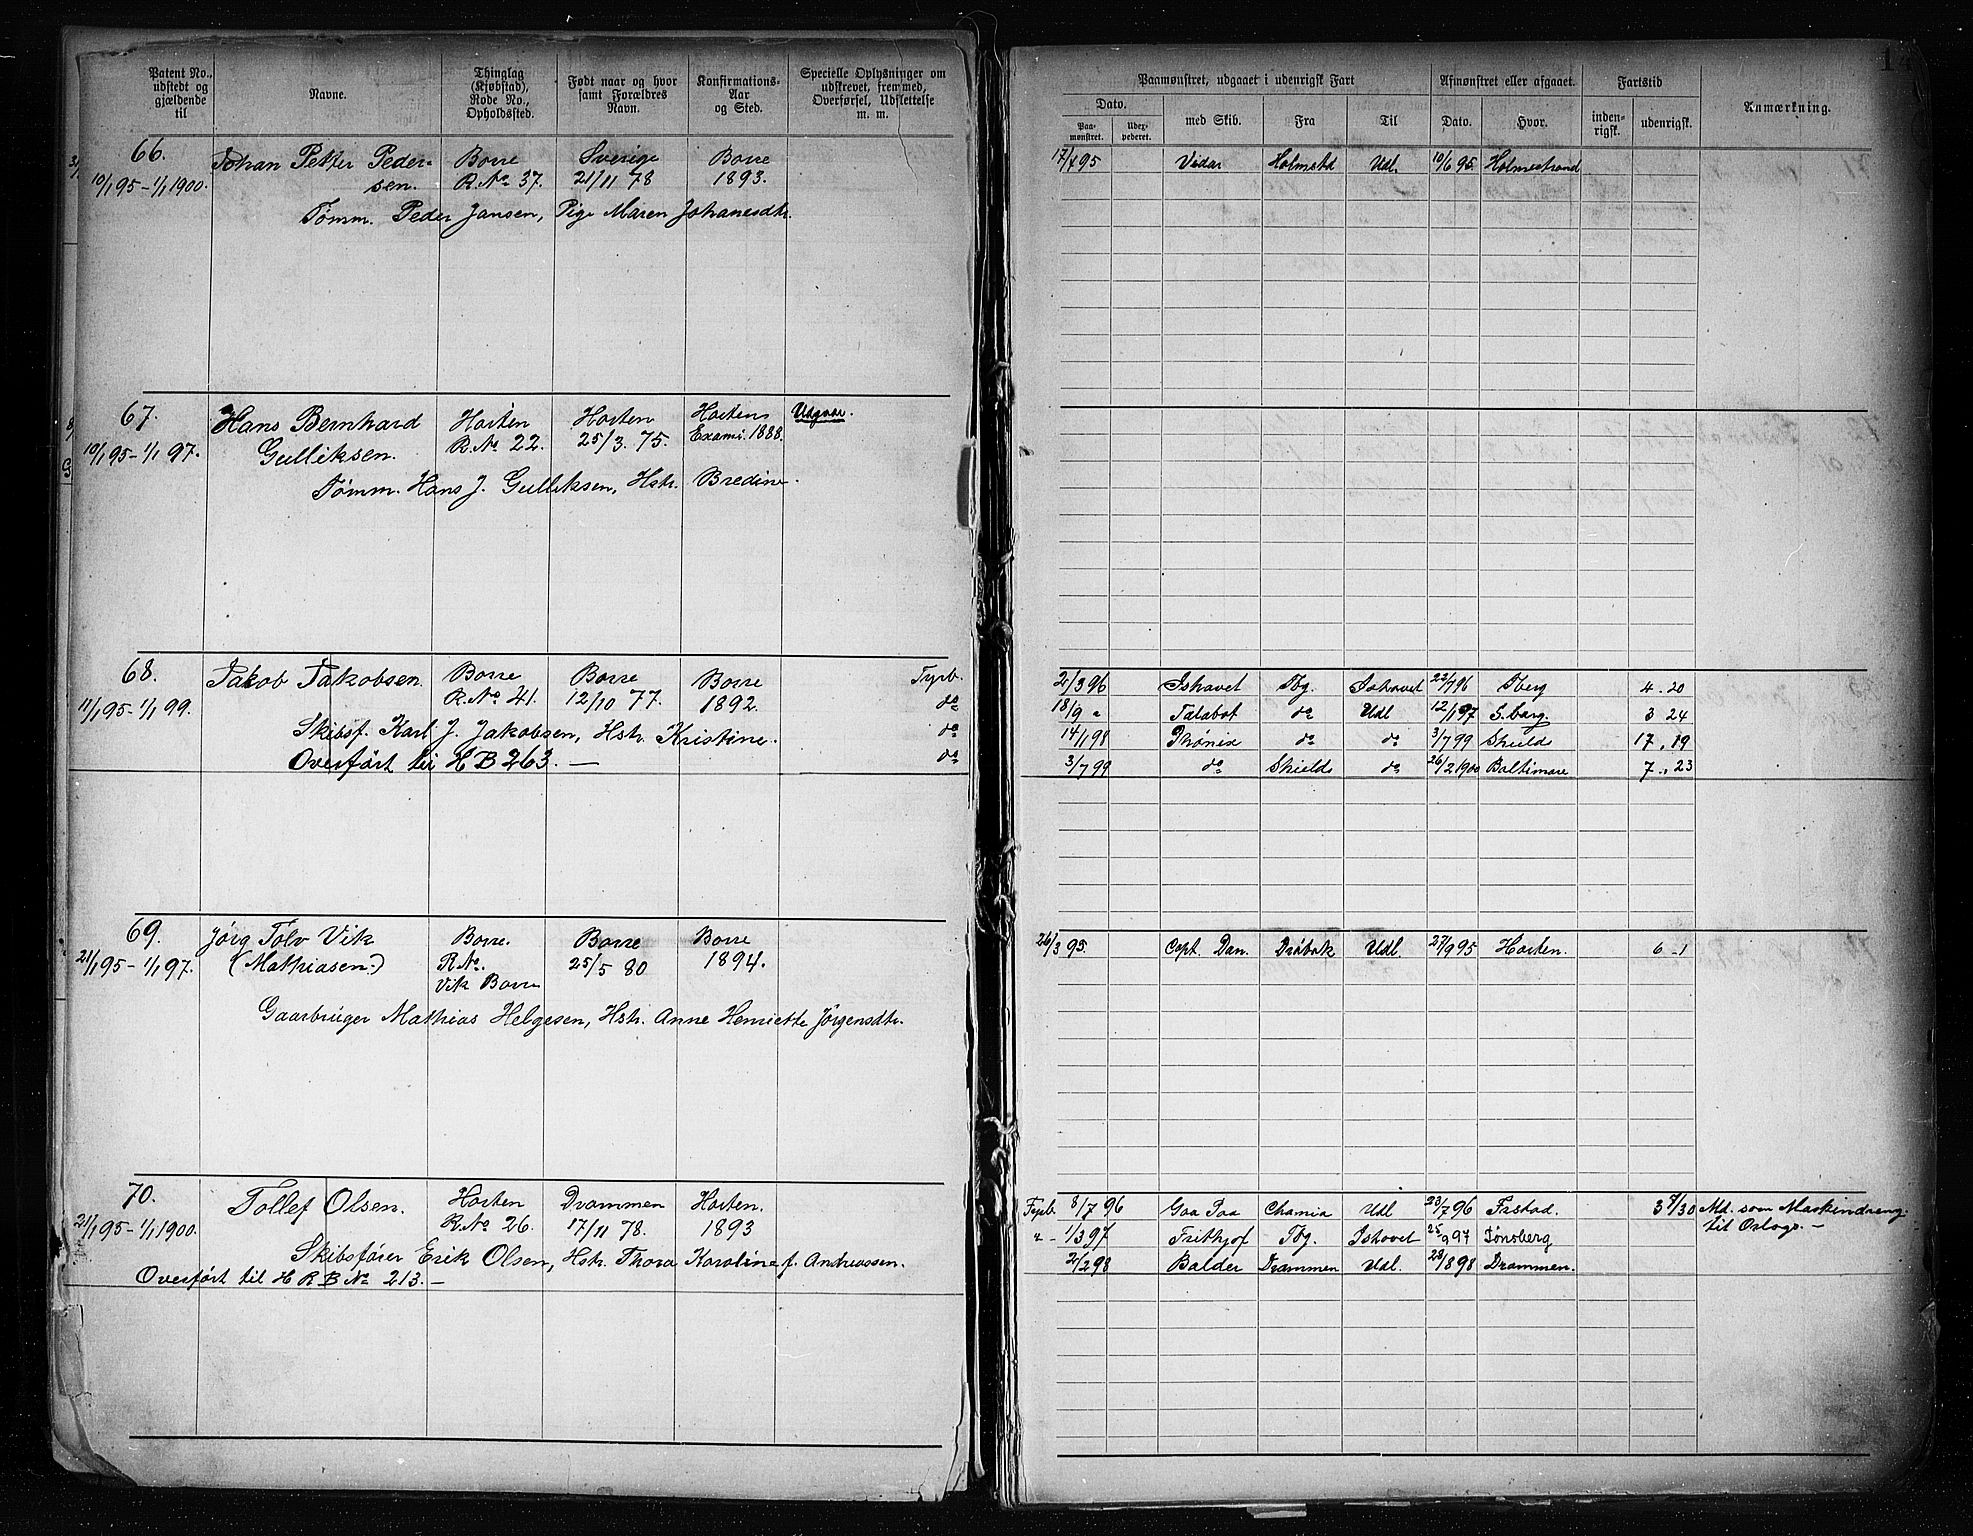 Patent No., udstedt og gjældende til
Navne.
Thinglag (Kjøbstad), Rode No., Opholdssted.
Født naar og hvor samt Forældres Navn.
Konfirmations-Aar og Sted.
Specielle Oplysninger om udskrevet, fremmed, Overførsel, Udslettelse m. m.
Paamønstret, udgaaet i udenrigsk Fart
Afmønstret eller afgaaet.
Fartstid
Anmærkning.
Dato.
Paa-mønstret.
Udex-pederet.
med Skib.
Fra
Til
Dato.
Hvor.
inden-rigsk.
udenrigsk.
66. Johan Petter Peder- Borre Sverige Borre
10/1 95 - 1/1 1900. sen. R. No 37. 21/11 78 1893.
Tømm. Peder Jansen, Pige Maren Johanesdtr.
17/4 95 Vidar Holmstd Udl. 10/6 95 Holmestrand
67. Hans Bernhard Horten Horten Hortens Udgaar.
10/1 95 - 1/1 97. Gulliksen. R. No 22. 25/3. 75. Exami. 1888.
Tømm. Hans J. Gulliksen, Hstr. Bredine.
68. Jakob Jakobsen. Borre Borre Borre Fyrb.
11/1 95 - 1/1 99. R. No 41. 12/10 77. 1892. do
Skibsf. Karl J. Jakobsen, Hstr. Kristine. do
Overført til H B 263. — do
2/3 96 Ishavet Tbg. Ishavet 22/9 96 Tberg 4 . 20
18/9 " Talabot do Udl 12/1 97 S.barg. 3 24
14/1 98 Phønix do do 3/7 99 Shields 17 " 19
3/7 99 do Shields do 26/2 1900 Baltimore 7 " 23
69. Jørg Tolv Vik Borre. Borre Borre
21/1 95 - 1/1 97. (Mathiasen.) R. No. 25/5 80 1894.
Vik Borre
Gaarbruger Mathias Helgesen, Hstr. Anne Henriette Jørgensdtr.
26/3 95. Cept. Dan. Drøbak Udl. 27/9 95 Horten. 6 - 1
70. Tollef Olsen. Horten Drammen Horten.
21/1 95 - 1/1 1900. R. No 26. 17/11 78. 1893
Skibsfører Erik Olsen, Hstr. Thora Karoline f. Andreassen.
Overført til H R B No 213. —
Fyrb. 8/7 96 Gaa Paa Chamia Udl 23/7 96 Frstad. Md. som Maskindreng
til Orlogs. —
" - 1/3 97 Frithjof Tbg. Ishavet 25/9 97 Tønsberg
2/2 98 Balder Drammen Udl. 28/8 98 Drammen.